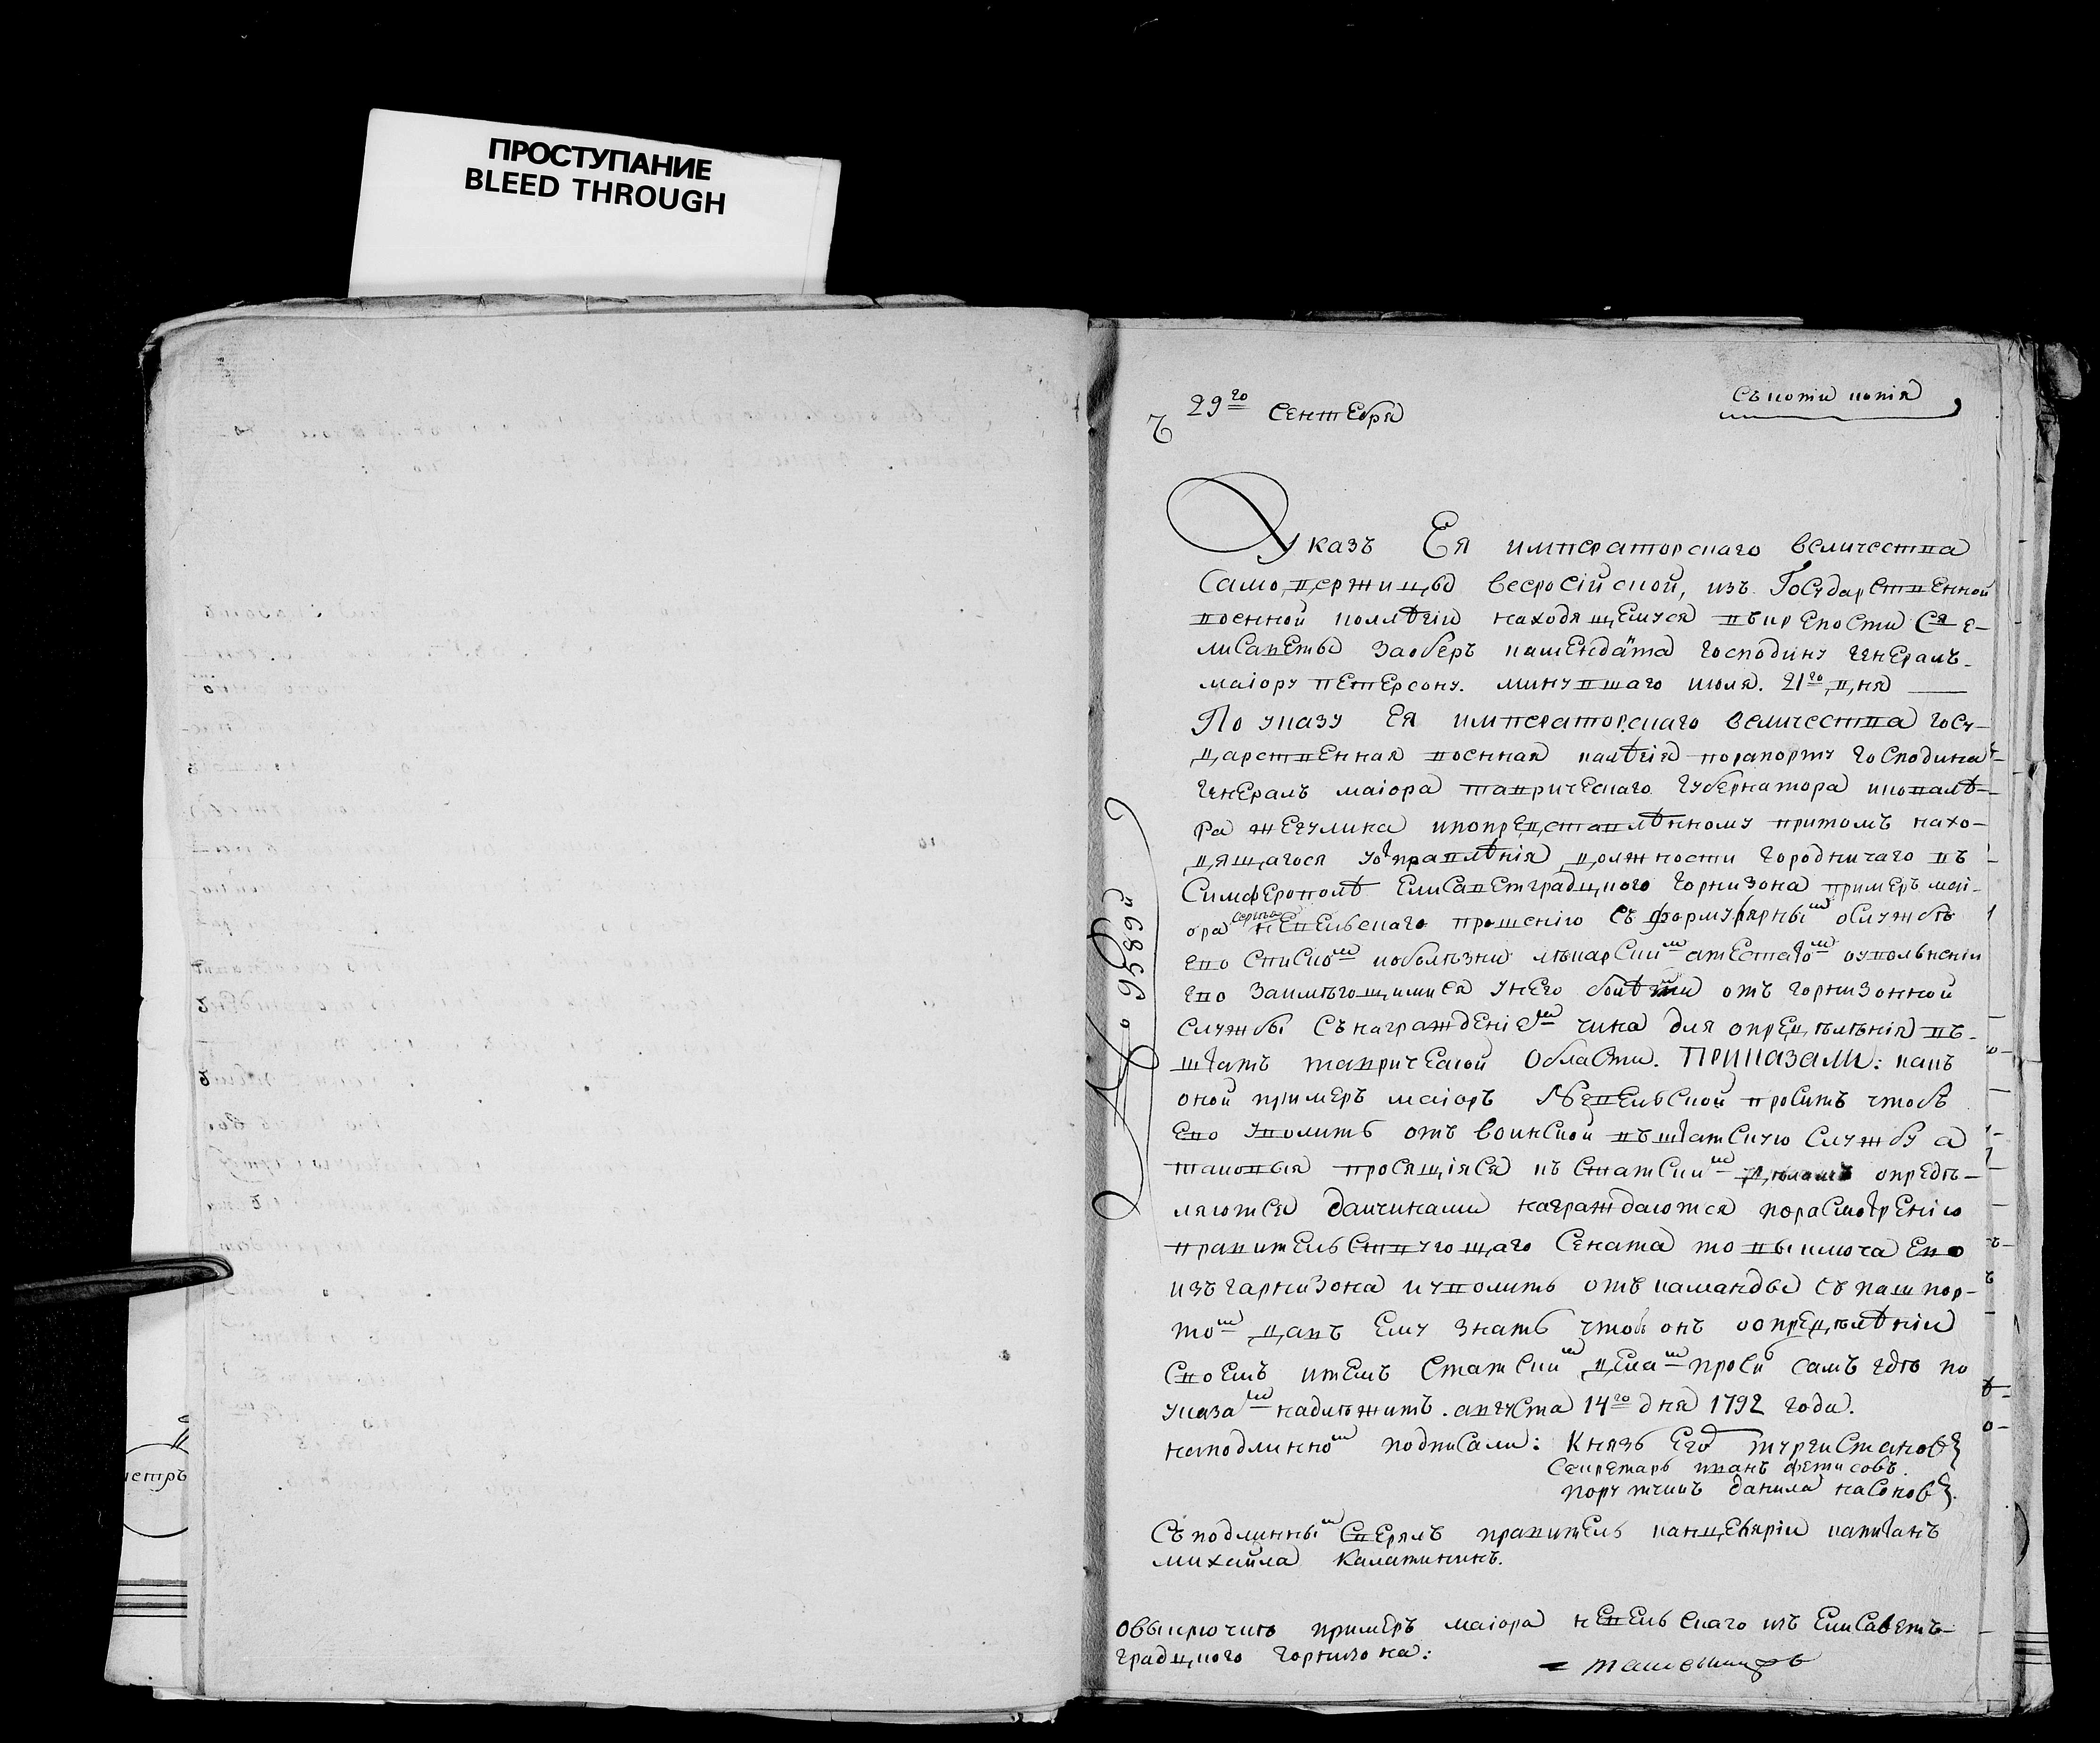 ПРОСТУПАНИЕ
BLEED THROUGH
29го Сентебря
Съ копіи копія
Указъ Ея императорскаго величества
Самодержицы всеросійской, изъ Государственной
военной колѣгіи находящемуся въкрепости Св е-
лисаветы заоберъ каменданта господину генералъ-
маіору петерсону. минувшаго июля. 21го дня
По указу Ея императорскаго величества госу-
дарственная военная калѣгія порапорту господина
генералъ маіора таврическаго губернатора икавалѣ-
ра жегулина ипопредставлѣнному притомъ нахо-
дящагося уотправлѣнія должности городничаго въ
Симферополѣ Елисаветградцкого горнизона примеръ маі-
ора Сергея невельскаго прошенію съ формулярнымъ ослужбѣ
ево спискомъ иоболѣзни лѣкарскимъ атестатомъ оувольненіи
ево заимѣющимися унего болѣзньми отъ горнизонной
службы съ награжденіемъ чина для опредѣлѣнія въ
штатъ таврической области. ПРИКАЗАЛИ: какъ
оной примеръ маіоръ Невельской проситъ чтобъ
ево уволить отъ воинской въштатскую службу а
таковыя просящіяся къ статскимъ дѣламъ опредѣ-
ляются даичинами награждаются порасмотренію
правительствующаго Сената то выключа ево
изъ гарнизона иуволить отъ каманды съ пашпор-
томъ давъ ему знать чтобы онъ оопредѣлѣніи
своемъ ктемъ статскимъ деламъ просилъ самъ где по
указамъ надлѣжитъ. августа 14го дня 1792 года.
наподлинномъ подписали: Князь Егор туркистановъ
Секретарь иванъ фетисовъ.
порутчикъ данила насоновъ.
Съ подлиннымъ сверялъ правитель канцелярии капитанъ
михайла Калатининъ.
№ 9589й
овыключке примеръ маіора невельскаго изъ Елисаветъ-
градцкого горнизона: